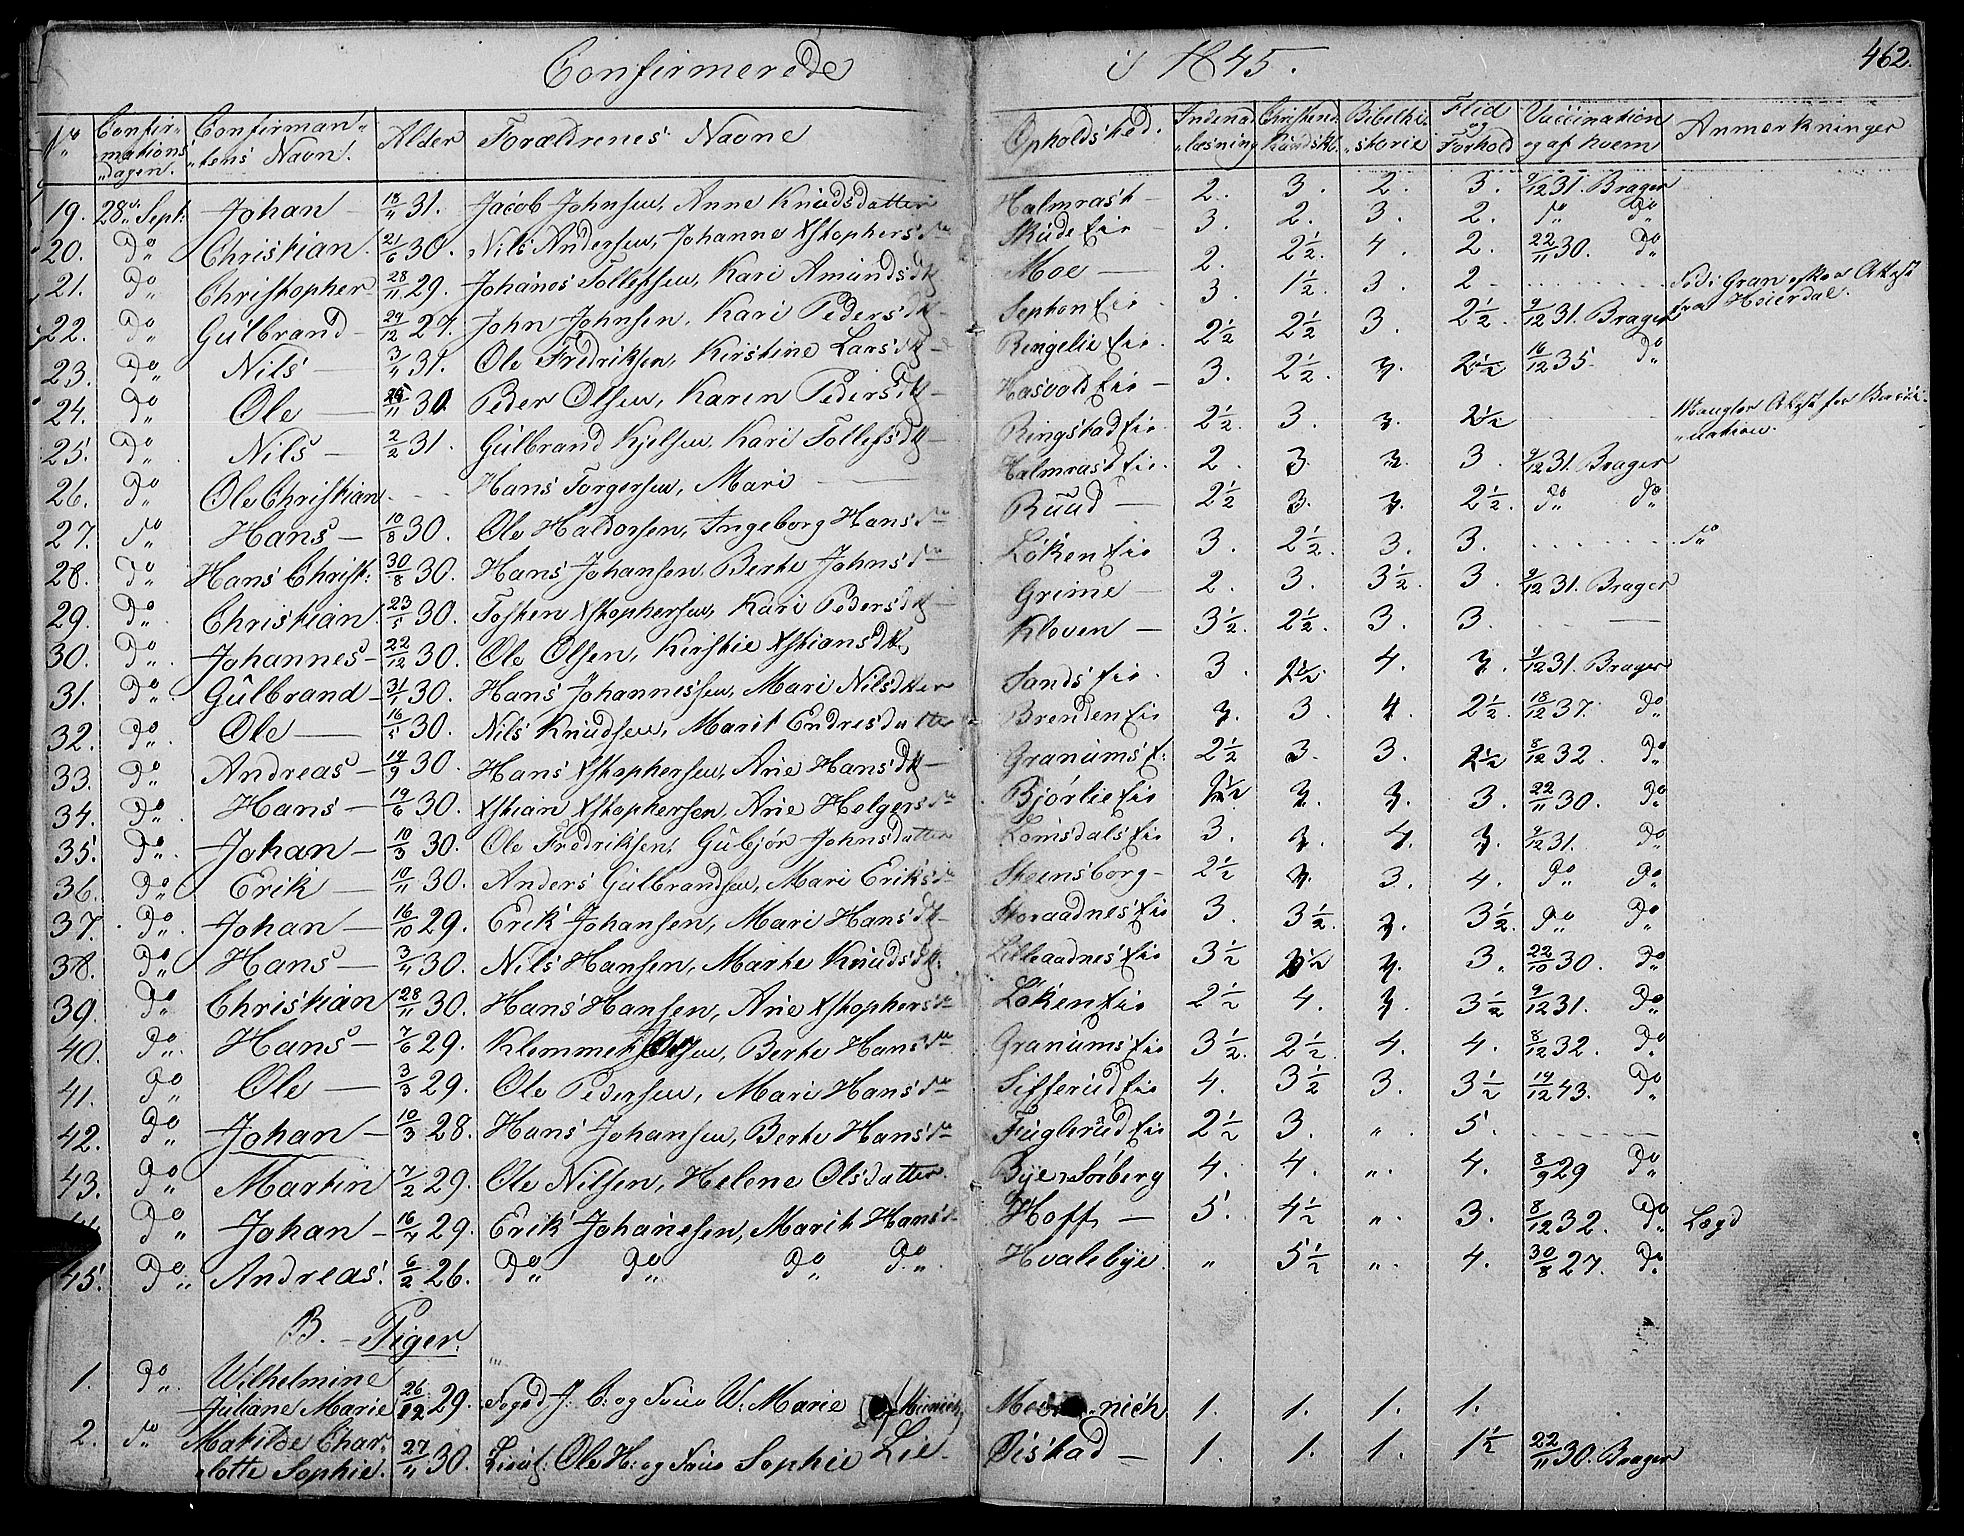 Confirmerede i 1845. 462.
No Confir- mations- dagen. Confirman- tens Navn. Alder Forældrenes Navne Opholdsted. Indenad- læsning Christend. Kundsk. Bibelhi- storie Flid og Forhold Vaccination og af hvem Anmærkninger
19. 28de Sept: Johan 18/11 31. Jacob Johnsen, Anne Knudsdatter Halmrast 2. 3. 2. 3. 9/12 31. Brager
20. do Christian. 21/6 30. Nils Andersen, Johanne Xstophersdr Skudeeie 3. 2. 3. 2. do do
21. do Christopher 28/11 29. Johanes Tollefsen, Kari Amundsdtr Moe 2. 2½ 4. 2. 22/11 30. do
22. do Gulbrand 29/12 27. John Johnsen, Kari Pedersdtr 3. 1½. 3. 2 Gran fra Høierdal.
23. do Nils 3/11 31. Ole Fredriksen, Kirstine Larsdtr Ringelieeie. 2½ 2½ 3. 2½. 9/12 31. Brager
24. do Ole 25/11 30 Peder Olsen, Karen Pedersdtr Hasvoldeie 3. 2½. 3. 2½ 16/12 35. do
25. do Nils 2/2 31. Gulbrand Kjelsen, Kari Tollefsdtr Ringstadeie. 2½. 3. 3. 2½ Mangler Attest for Vacci- nation.
26. do Ole Christian Hans Torgersen, Mari Halmrasteie. 2. 3. 3. 3. 9/12 31. Brager
27. do Hans 10/8 30. Ole Haldorsen, Ingeborg Hansdr Ruud 2½ 3. 3. 2½. do do
28. do Hans Christ: 30/8 30. Hans Johansen, Berte Johnsdr Løkeneie 3. 2½. 3. 3. do
29. do Christian 23/5 30. Tosten Xstophersen, Kari Pedersdtr Grime 2. 3. 3½. 3. 9/12 31. Brager
30. do Johannes 22/12 30. Ole Olsen, Kirstie Xstiansdtr Kloven 3½. 2½. 3. 3.
31. do Gulbrand 31/1 30. Hans Johannessen, Mari Nilsdtter Sandseie. 3. 2½. 4. 3. 9/12 31. Brager
32. do Ole 16/5 30. Nils Knudsen, Marit Endresdatter Brendeneie 3. 3. 4. 2½. 18/12 37. do
33. do Andreas 14/9 30. Hans Xstophersen, Anne Hansdtr Granumse: 2½ 3. 3. 2½ 8/12 32. do
34. do Hans 19/6 30. Xstian Xstophersen, Anne Helgersdr Bjørlieeie 3. 3. 3. 22/11 30. do
35. do Johan 10/3 30. Ole Fredriksen, Gubjør Johnsdatter Lomsdalseie 3. 3. 4. 3. 9/12 31. do
36. do Erik 10/11 30. Anders Gulbrandsen, Mari Eriksdr Steensborg 2½ 3. 3. 4. do do
37. do Johan 16/10 29. Erik Johansen, Mari Hansdtr Storaadneseie 3. 3½. 3. 3½. do do
38. do Hans 3/11 30. Nils Hansen, Marte Knudsdtr. Lilleaadneseie 3½ 3. 3. 22/10 30. do
39. do Christian 28/11 30. Hans Hansen, Anne Xstophersdr Løkeneie 2½ 4. 3. 3½ 9/12 31. do
40. do Hans 7/6 29. Klemmet Olsen, Berte Hansdr Granumseie 3½. 2½. 4. 4. 8/12 32. do
41. do Ole 3/3 29. Ole Pedersen, Mari Hansdr Sifferudeie 4. 3½ 3. 3½ 19/12 43. do
42. do Johan 10/3 28. Hans Johansen, Berte Hansdr Fuglerudeie 2½ 3. „. 5.
43. do Martin 7/2 29. Ole Nilsen, Helene Olsdatter Bye, Sørberg 4. 4. „. 4. 8/9 29 do
do Johan 16/4 29. Erik Johanesen, Marit Hansdr Hoff 5. 4½ „. 3. 8/12 32. do Lægd
45. do Andreas. 6/2 26. do do do do Hvalebye. „ 5½ „. 4. 30/8 27. do
B. - Piger.
1. do Wilhelmine
Juliane Marie 26/12 29. J. C: og Frue W. Marie 1. 1. 1. 1.
2. do Matilde Char-
lotte Sophie. 27/11 30. Lieut: Ole H: og Frue Sophie Lie. Øistad 1. 1. 1. 1½ 22/11 30. Brager